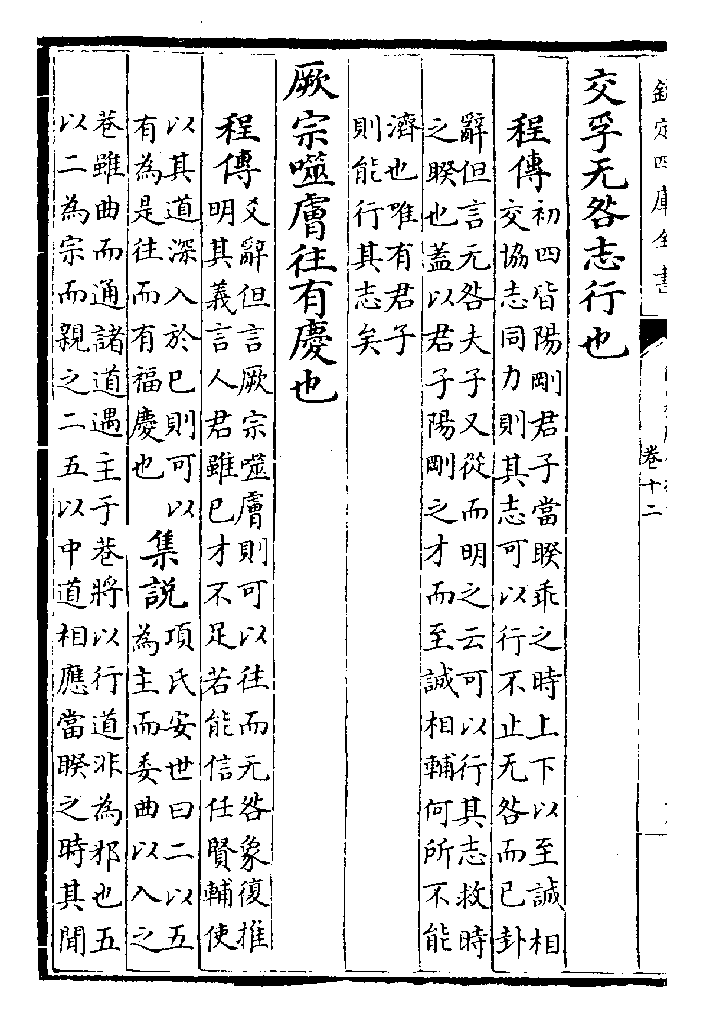 欽定四庫全書
卷十二
交孚无咎志行也
程傳
初四皆陽剛君子當睽乖之時上下以至誠相
交協志同力則其志可以行不止无咎而已卦
辭但言无咎夫子又從而明之云可以行其志救時
之睽也蓋以君子陽剛之才而至誠相輔何所不能
濟也唯有君子
則能行其志矣
厥宗噬膚往有慶也
程傳
爻辭但言厥宗噬膚則可以往而无咎象復推
明其義言人君雖已才不足若能信任賢輔使
以其道深入於已則可以
有為是往而有福慶也
集說
項氏安世曰二以五
為主而委曲以入之
巷雖曲而通諸道遇主于巷將以行道非為邪也五
以二為宗而親之二五以中道相應當睽之時其閒